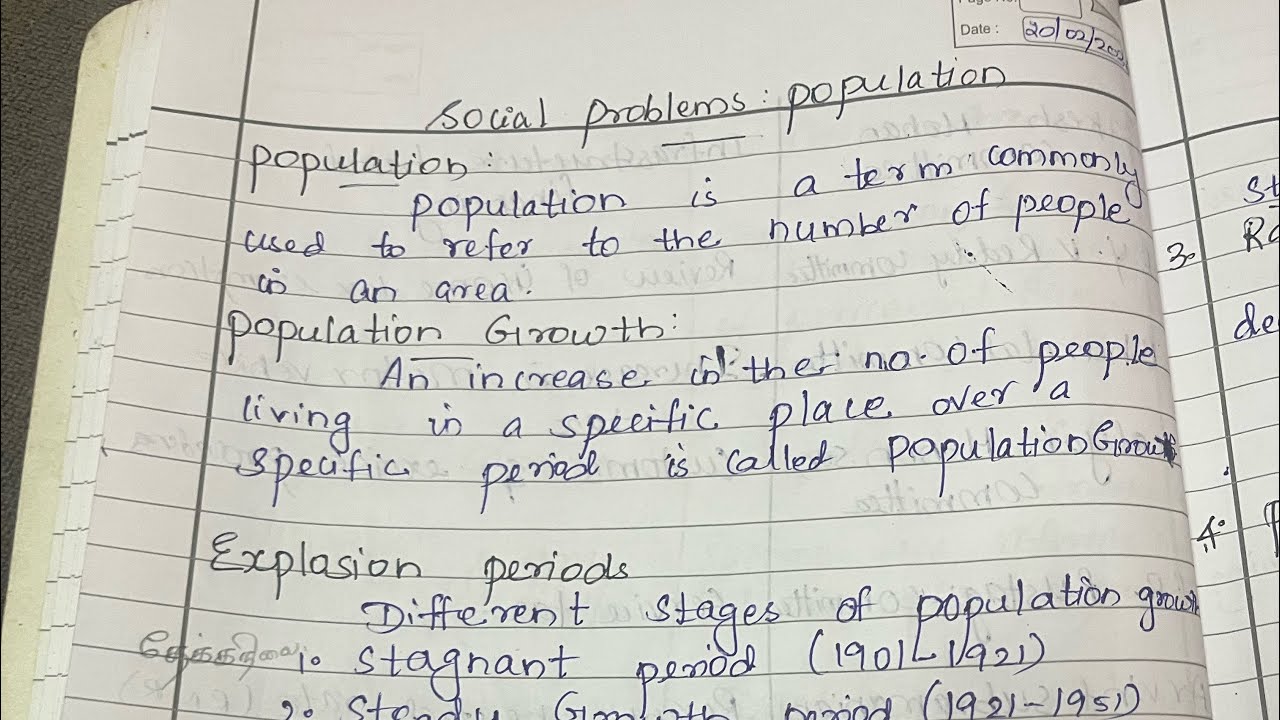 Date: 20/02/200
Social problems: population
population:
population is a term commonly
used to refer to the number of people
in an area.
population Growth:
An increase in the no. of people
living in a specific place over a
specific period is called population Growt
Explasion periods
Different stages of population growth
தேக்கநிலை 1. stagnant period (1901-1921)
2. Steady Growth period (1921-1951)
3.
4.